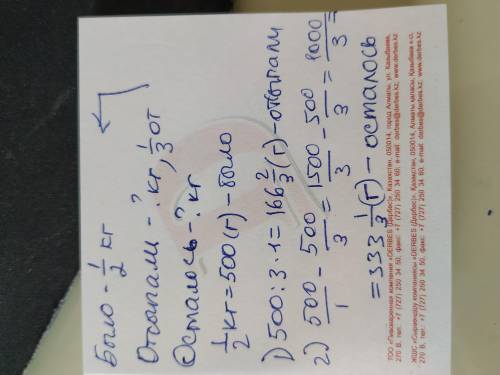 Было - 1/2 кг
Отсыпали - ? кг, 1/3 от
Осталось - ? кг
1/2 кг = 500 (г) - было
1) 500 : 3 · 1 = 166 2/3 (г) - отсыпали
2) 500/1 - 500/3 = 1500/3 - 500/3 = 1000/3 =
= 333 1/3 (г) - осталось
ТОО «Лизинговая компания «DERBES (Дербес)», Казахстан, 050014, город Алматы, ул. Казыбаева,
270 В, тел.: +7 (727) 250 34 60, факс: +7 (727) 250 34 50, e-mail: derbes@derbes.kz, www.derbes.kz
ЖШС «Сервисную компаниясы «DERBES (Дербес)», Қазақстан, 050014, Алматы қаласы, Қазыбаев к-сі,
270 В, тел.: +7 (727) 250 34 60, факс: +7 (727) 250 34 50, e-mail: derbes@derbes.kz, www.derbes.kz